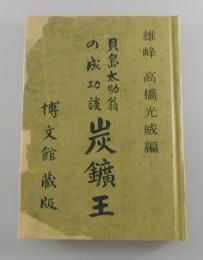 雄峰 高橋光威編
貝島太助翁
の成功談
炭鑛王
博文館蔵版